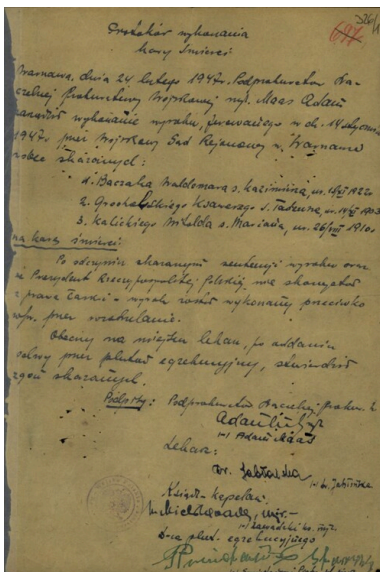 326/1
697
Protokół wykonania
kary śmierci
Warszawa, dnia 24 lutego 1947r. Podprokurator Na-
czelnej Prokuratury Wojskowej mjr. Maas Adam
zarządził wykonanie wyroku, ferowanego w dn. 14 stycznia
1947r. przez Wojskowy Sąd Rejonowy w Warszawie
wobec skazanych:
1. Baczaka Waldemara s. Kazimierza, ur. 1922r.
2. Grocholskiego Ksawerego s. Tadeusza, ur. 1903
3. Kalickiego Witolda s. Mariana, ur. 26/VIII 1910r.
na karę śmierci.
Po odczytaniu skazanym sentencji wyroku oraz
że Prezydent Rzeczypospolitej Polskiej nie skorzystał
z prawa łaski - wyrok został wykonany przeciwko
w/w. przez rozstrzelanie.
Obecny na miejscu lekarz, po oddaniu
salwy przez pluton egzekucyjny, stwierdził
zgon skazanych.
Podpisy: Podprokurator Naczelnej Prokur. W.
Adam
Adam Maas
Lekarz:
Dr.
Ksiądz - kapelan
mjr.
D-ca plut. egzekucyjnego